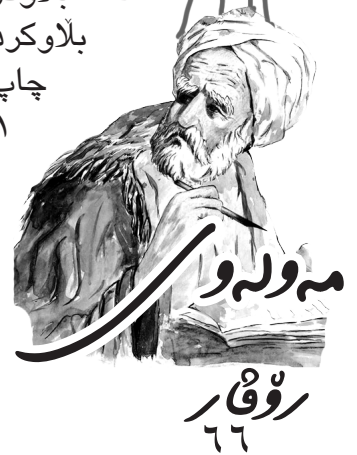 بڵاوکرد
چاپ
١
مەولەوی
رۆڤار
٦٦